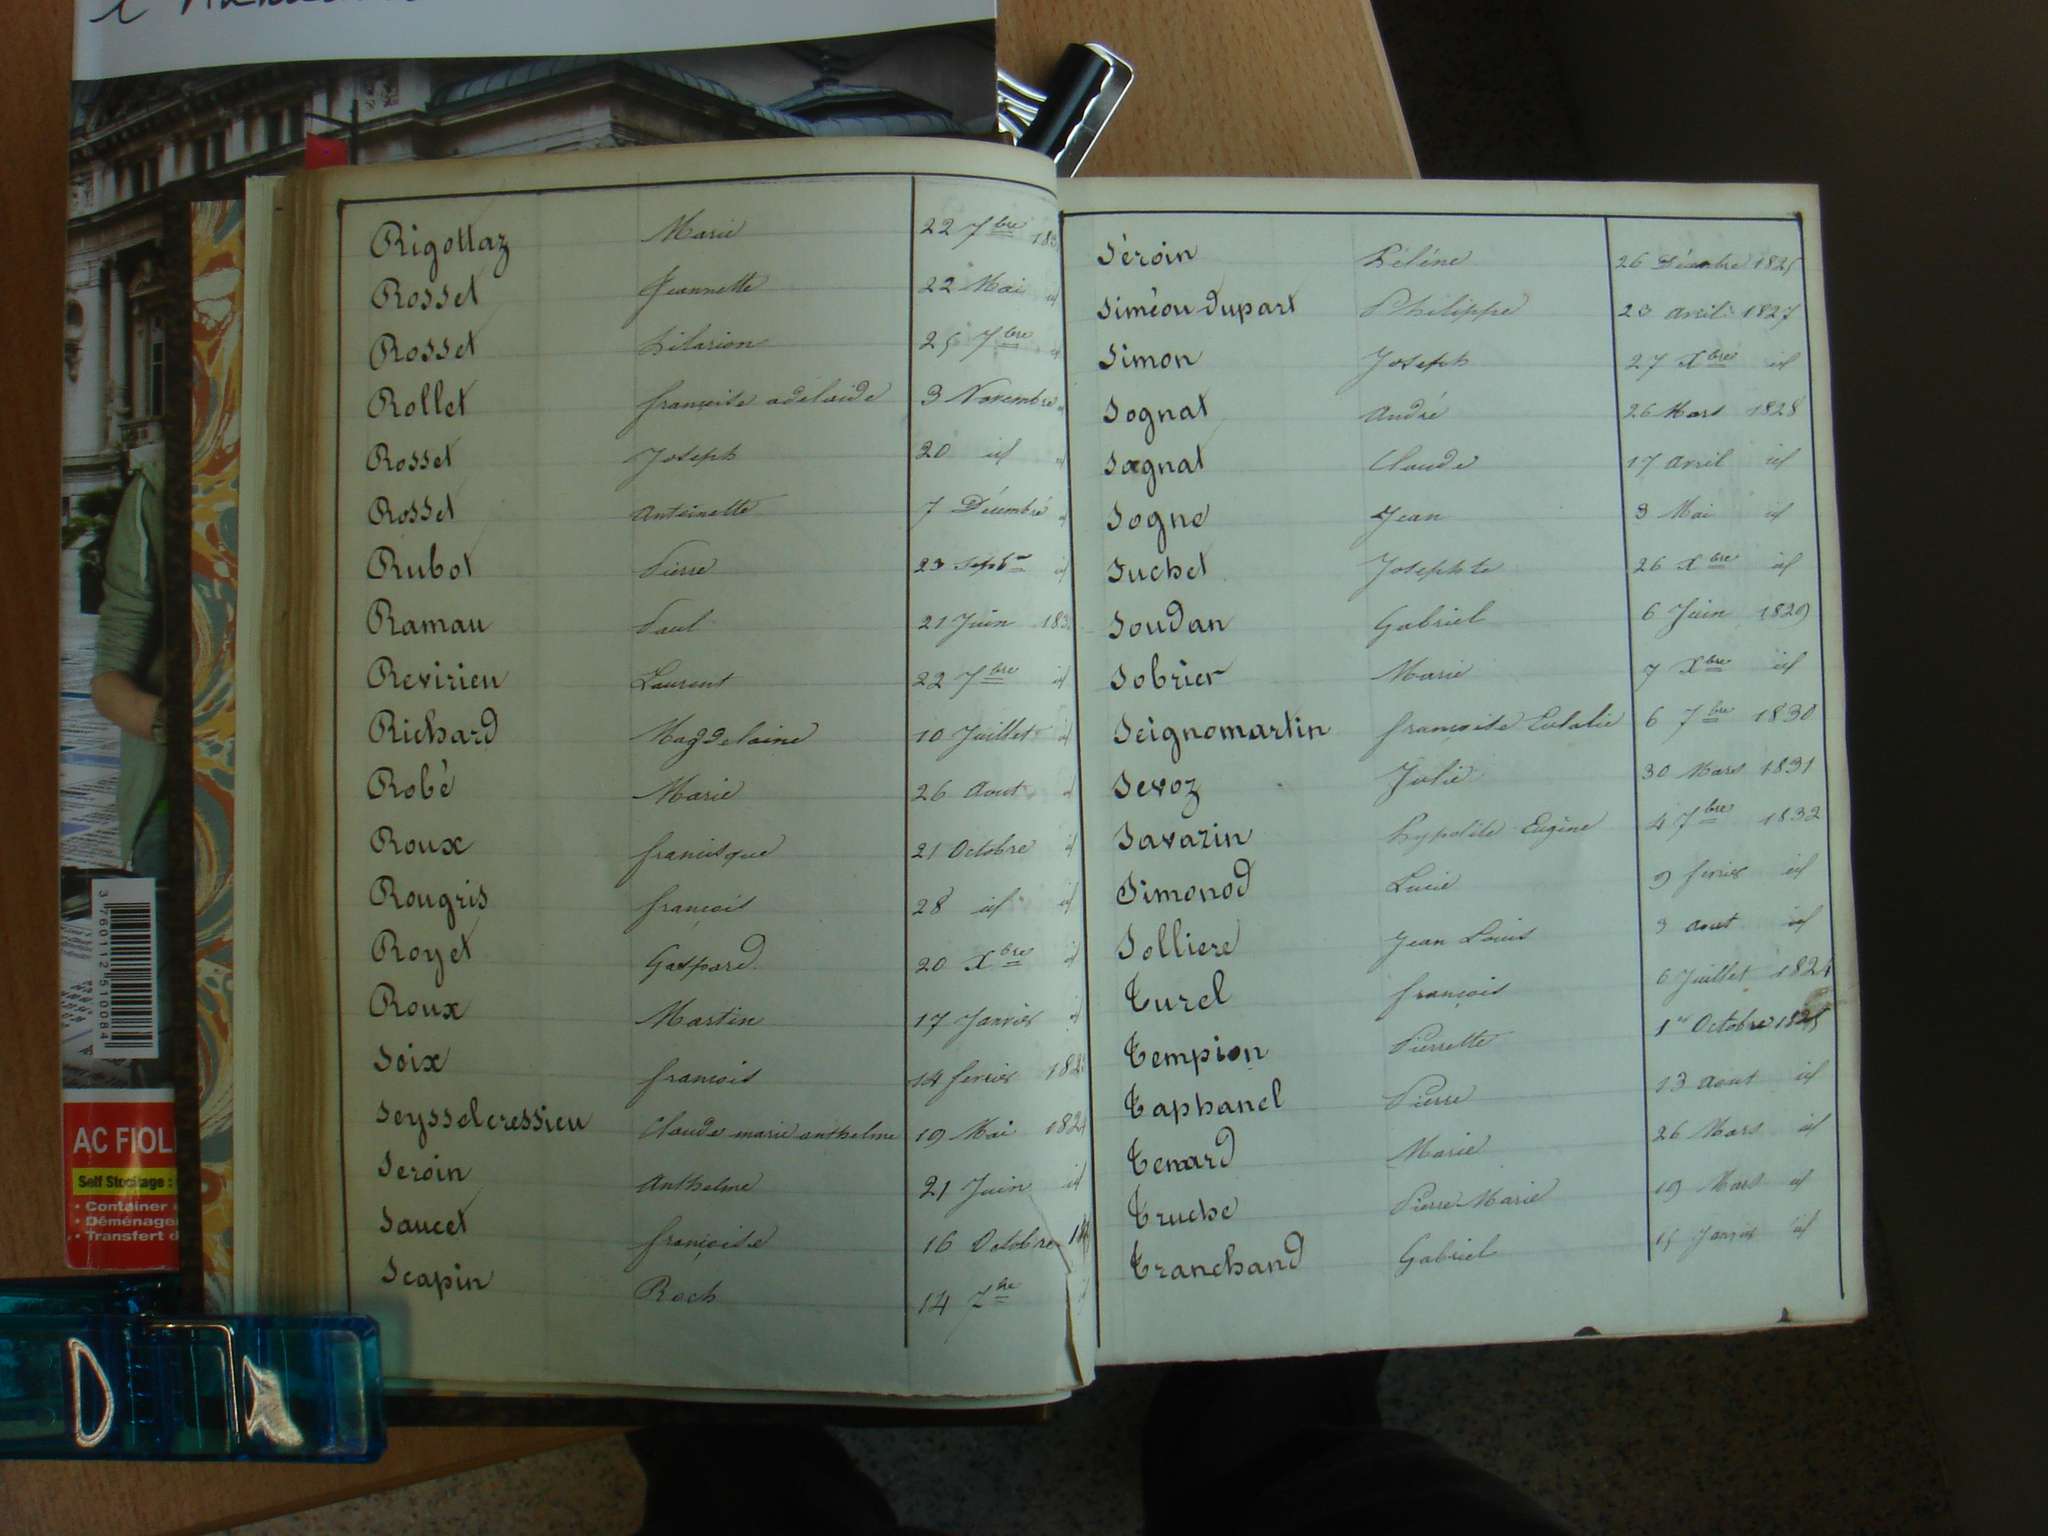 Rigottaz Marie 22 7bre 183
Rosset Jeannette 22 Mai id
Rosset hilarion 25 7bre id
Rollet françoise adelaide 3 Novembre id
Rosset Joseph 20 id id
Rosset Antoinette 7 Décembre id
Rubot Pierre 23 Septbre id
Ramau Paul 21 Juin 183
Revirieu Laurent 22 7bre id
Richard Magdelaine 10 Juillet id
Robé Marie 26 Aout id
Roux francisque 21 Octobre id
Rougris françois 28 id id
Royet Gaspard 20 Xbre id
Roux Martin 17 Janvier id
Soix françois 14 fevrier 182
Seysselcressieu Claude marie anthelme 19 Mai 1824
Seroin Anthelme 21 Juin id
Saucet françoise 16 Octobre
Scapin Roch 14 7bre
Séroin héléne 26 Décembre 1825
Siméon dupart Philippe 23 avril 1827
Simon Joseph 27 Xbre id
Sognat André 26 Mars 1828
Sognat Claude 17 avril id
Sogno Jean 3 Mai id
Suchet Josephte 26 Xbre id
Soudan Gabriel 6 Juin 1829
Sobrier Marie 7 Xbre id
Seignomartin françoise Eulalie 6 7bre 1830
Sevoz Julie 30 Mars 1831
Savarin hypolite Eugène 4 7bre 1832
Simonod Lucie 9 fevrier id
Solliere Jean Louis 3 aout id
Turel françois 6 Juillet 1824
Tempion Pierrette 1er Octobre 1825
Taphanel Pierre 13 aout id
Tenard Marie 26 Mars id
Truche Pierre Marie 19 Mars id
Tranchand Gabriel 15 Janvier id
3 760112 510084
AC FIOL
Self Stockage :
• Container
• Déménage
• Transfert d